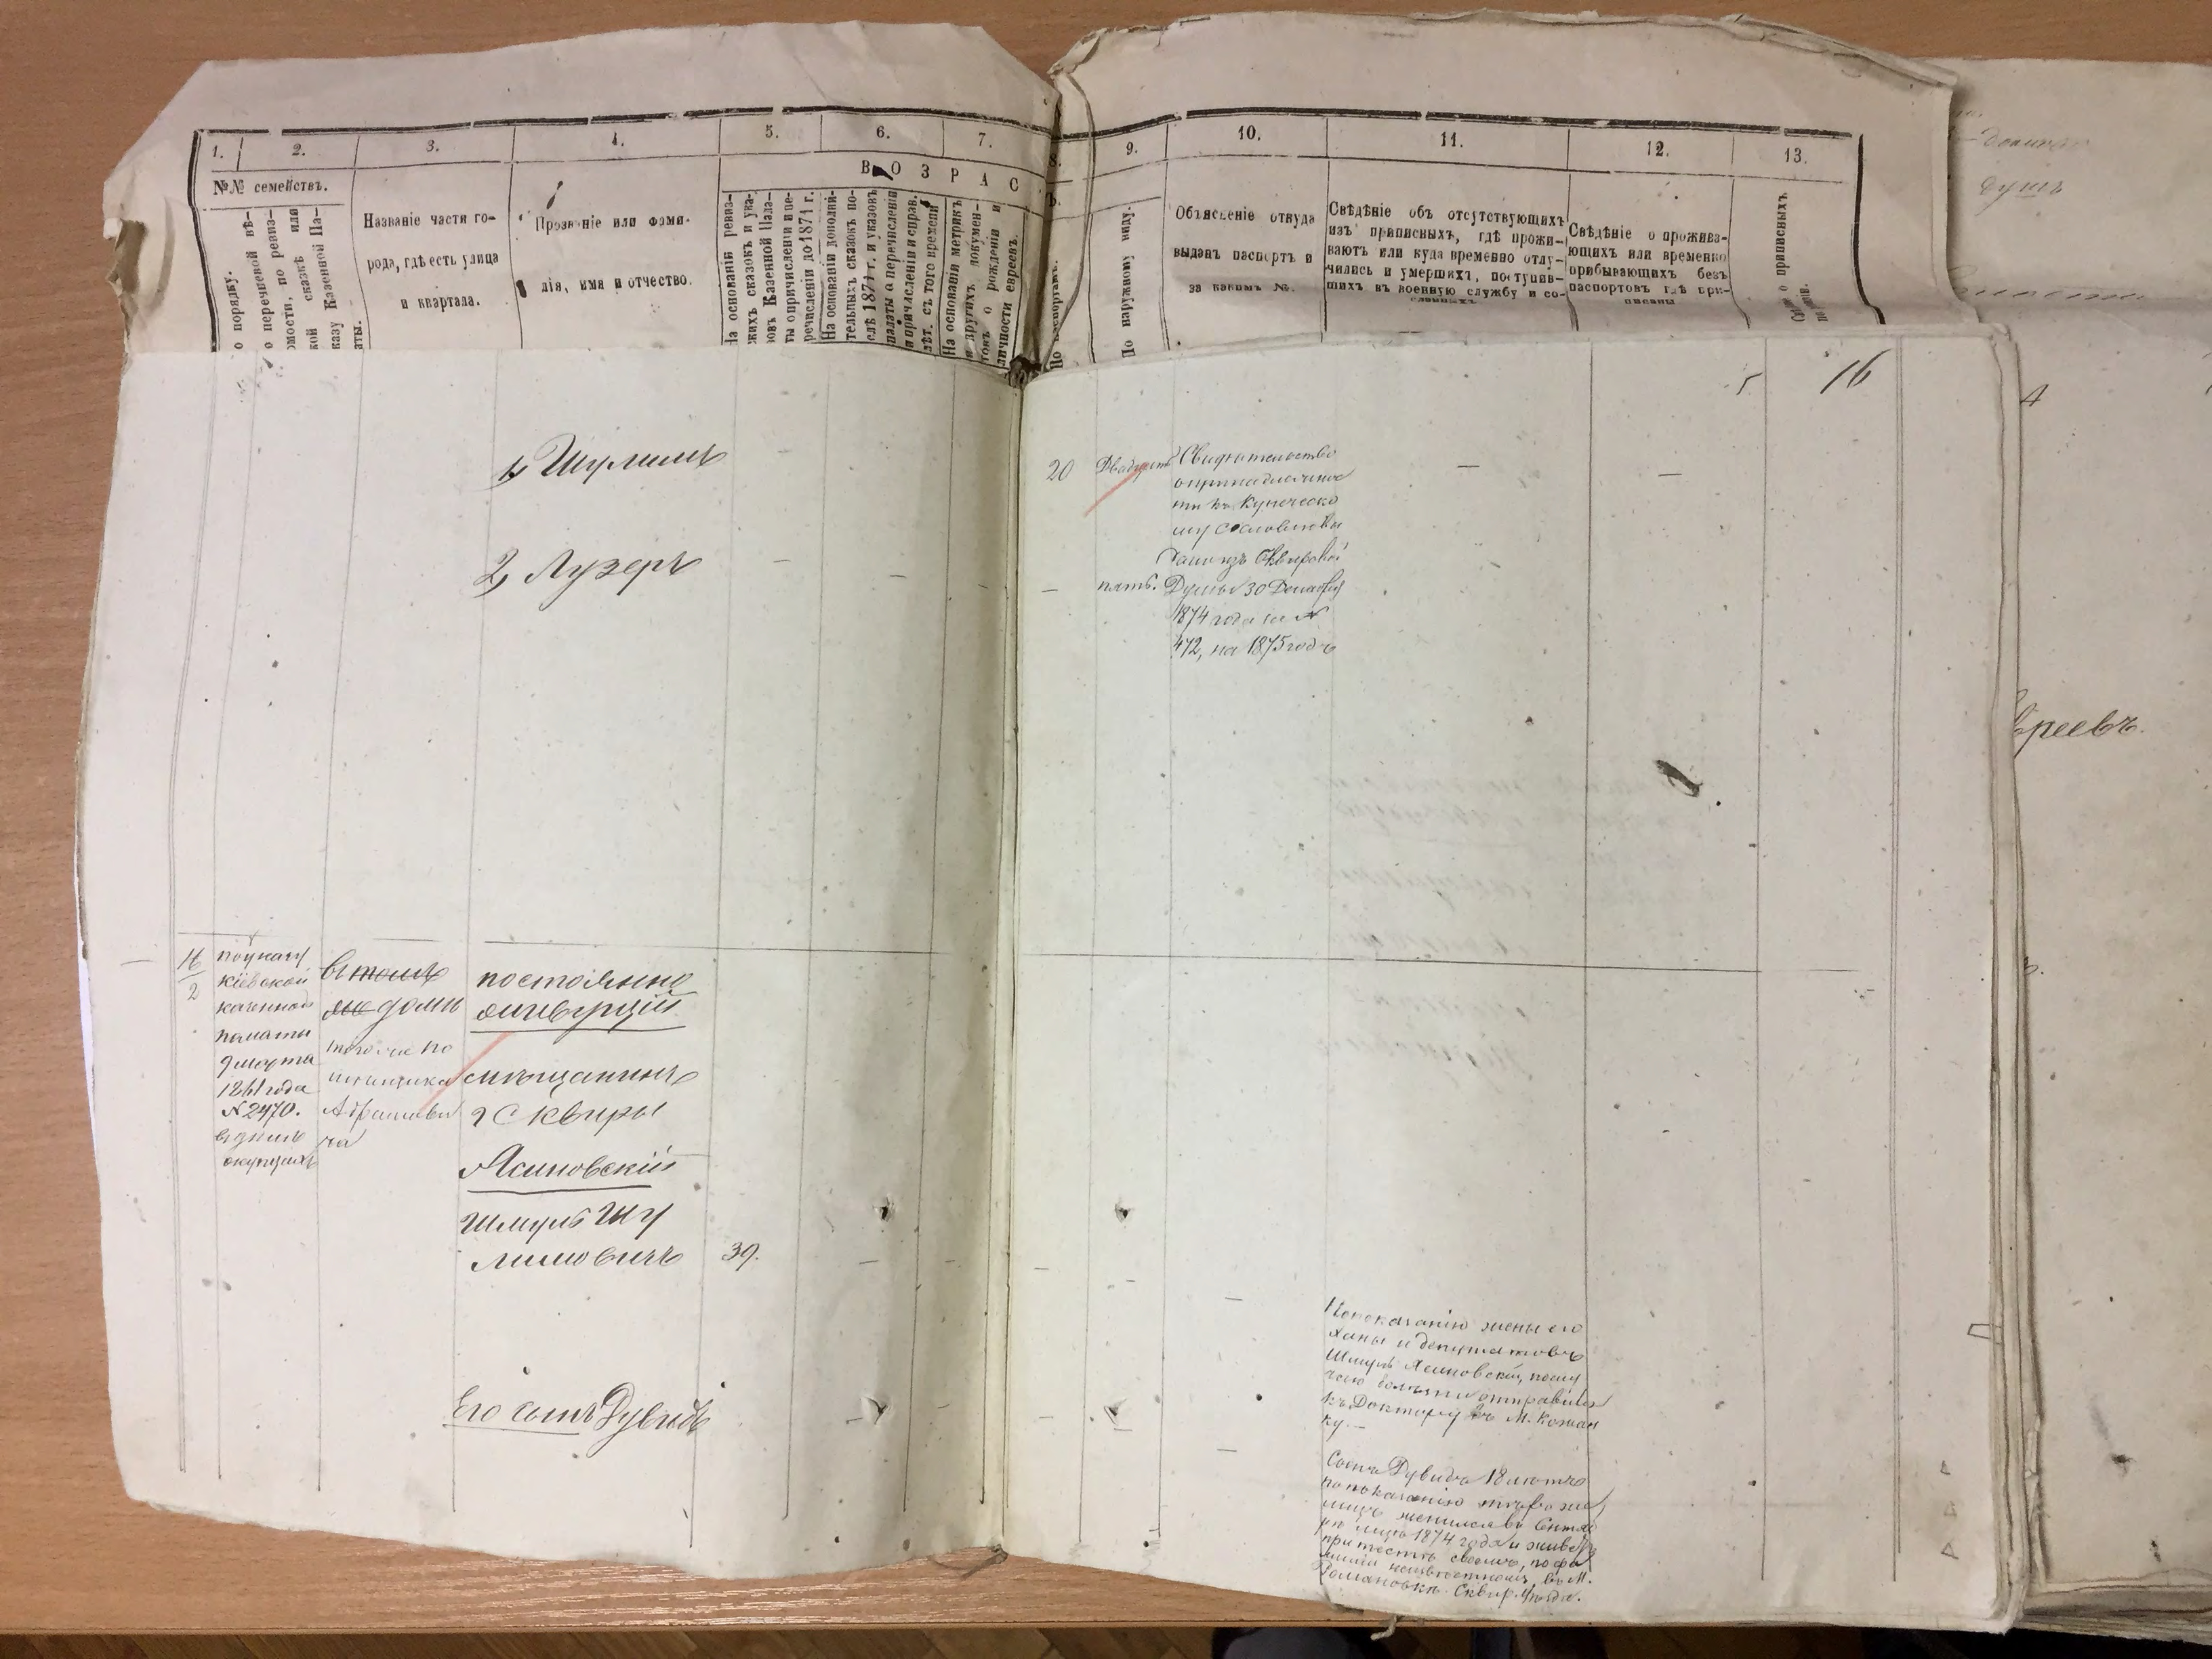 1. 2. 3. 4. 5. 6. 7. 8. 9. 10. 11. 12. 13.
№№ семействъ.
В О З Р А С Ъ.
о порядку.
о перечневой вѣ-
омости, по ревиз-
кой сказкѣ или
казу Казенной Па-
аты.
Названіе части го-
рода, гдѣ есть улица
и квартала.
Прозваніе или фами-
лія, имя и отчество.
На основаніи ревиз-
жихъ сказокъ и ука-
зовъ Казенной Пала-
ты о причисленіи и пе-
речисленіи до 1871 г.
На основаніи дополни-
тельныхъ сказокъ по-
слѣ 1871 г. и указовъ
палаты о перечисленіи
и причисленіи и справ.
лѣт. съ того времени
На основаніи метрикъ
и другихъ докумен-
товъ о рожденіи и
личности евреевъ.
По паспортамъ.
По наружному виду.
Объясненіе откуда
выданъ паспортъ и
за какимъ №.
Свѣдѣніе объ отсутствующихъ
изъ приписныхъ, гдѣ прожи-
ваютъ или куда временно отлу-
чились и умершихъ, поступив-
шихъ въ военную службу и со-
сланныхъ
Свѣдѣніе о прожива-
ющихъ или временно
прибывающихъ безъ
паспортовъ гдѣ при-
писаны
о приписныхъ
16
1, Шулимъ
20 Двадцать
Свидѣтельство
о принадлежнос
ти къ Купеческо
му Сословію вы
дано изъ Сквирской
Думы 30 Декабря
1874 года за №
472, на 1875 годъ
2, Лузеръ
пять.
16
2
по указу
Кіевской
казенной
палаты
9 марта
1861 года
№ 2470.
въ томъ
же домѣ
того же по
мѣщика
Абрамови
ча
постоянно
живущій
мѣщанинъ
г Сквиры
Ясиновскій
Шмуль Шу
лимовичъ 39.
По показанію жены его
Ханы и депутатовъ
Шмуль Ясиновскій, по слу
чаю болѣзни отправился
къ Доктору въ М. Кожан
ку.—
Его сынъ Дувидъ
Сынъ Дувидъ 18 лѣтъ
по показанію тѣхъ же
лицъ женился въ Сентяб
рѣ мцѣ 1874 года и живетъ
при тестѣ своемъ, по фа
миліи неизвѣстномъ, въ М.
Романовкѣ Сквир. уѣзда.
душъ
вреевъ.